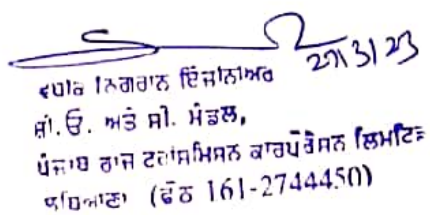 27/3/23
ਵਧੀਕ ਨਿਗਰਾਨ ਇੰਜੀਨੀਅਰ
ਸੀ.ਓ. ਅਤੇ ਸੀ. ਮੰਡਲ,
ਪੰਜਾਬ ਰਾਜ ਟਰਾਂਸਮਿਸਨ ਕਾਰਪੋਰੇਸਨ ਲਿਮਟਿਡ
ਲੁਧਿਆਣਾ (ਫੋਨ 161-2744450)